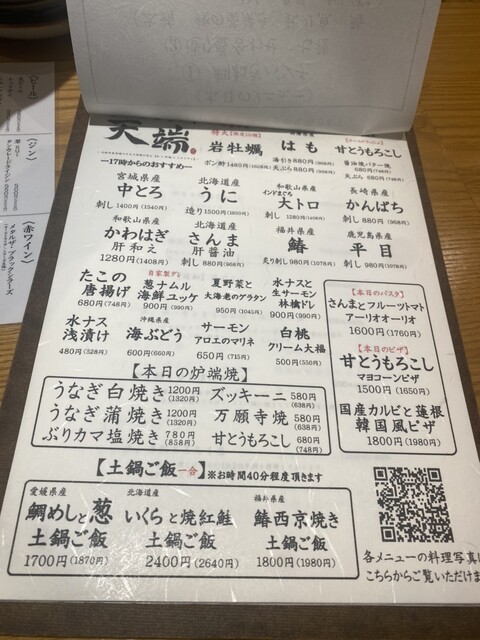 天端
ー17時からのおすすめー
特大
岩牡蠣
ポン酢
はも
湯引き880円
天ぷら880円
甘とうもろこし
醤油焼バター焼
680円(748円)
天ぷら 680円(748円)
宮城県産
中とろ
刺し 1400円(1540円)
北海道産
うに
造り 1500円
和歌山県産
インドまぐろ
大トロ
刺し 1280円(1408円)
長崎県産
かんぱち
刺し 880円(968円)
和歌山県産
かわはぎ
肝和え
1280円(1408円)
北海道産
さんま
肝醤油
刺し 880円(968円)
福井県産
鰆
炙り刺し 980円(1078円)
鹿児島県産
平目
刺し 980円(1078円)
たこの
唐揚げ
680円(748円)
自家製ダレ
葱ナムル
海鮮ユッケ
900円(990円)
夏野菜と
大海老のグラタン
950円(1045円)
水ナスと
生サーモン
林檎ドレ
900円(990円)
水ナス
浅漬け
480円(528円)
沖縄県産
海ぶどう
600円(660円)
サーモン
アロエのマリネ
650円(715円)
白桃
クリーム大福
500円(550円)
【本日のパスタ】
さんまとフルーツトマト
アーリオオーリオ
1600円(1760円)
【本日のピザ】
甘とうもろこし
マヨコーンピザ
1500円(1650円)
国産カルビと蓮根
韓国風ピザ
1800円(1980円)
【本日の炉端焼】
うなぎ白焼き 1200円(1320円)
うなぎ蒲焼き 1200円(1320円)
ぶりカマ塩焼き 780円(858円)
ズッキーニ 580円(638円)
万願寺焼 580円(638円)
甘とうもろこし 680円(748円)
【土鍋ご飯一合】※お時間40分程度頂きます
愛媛県産
鯛めしと葱
土鍋ご飯
1700円(1870円)
北海道産
いくらと焼紅鮭
土鍋ご飯
2400円(2640円)
福井県産
鰆西京焼き
土鍋ご飯
1800円(1980円)
各メニューの料理写真は
こちらからご覧いただけま
〈ビール〉
〈ジン〉
〈赤ワイン〉